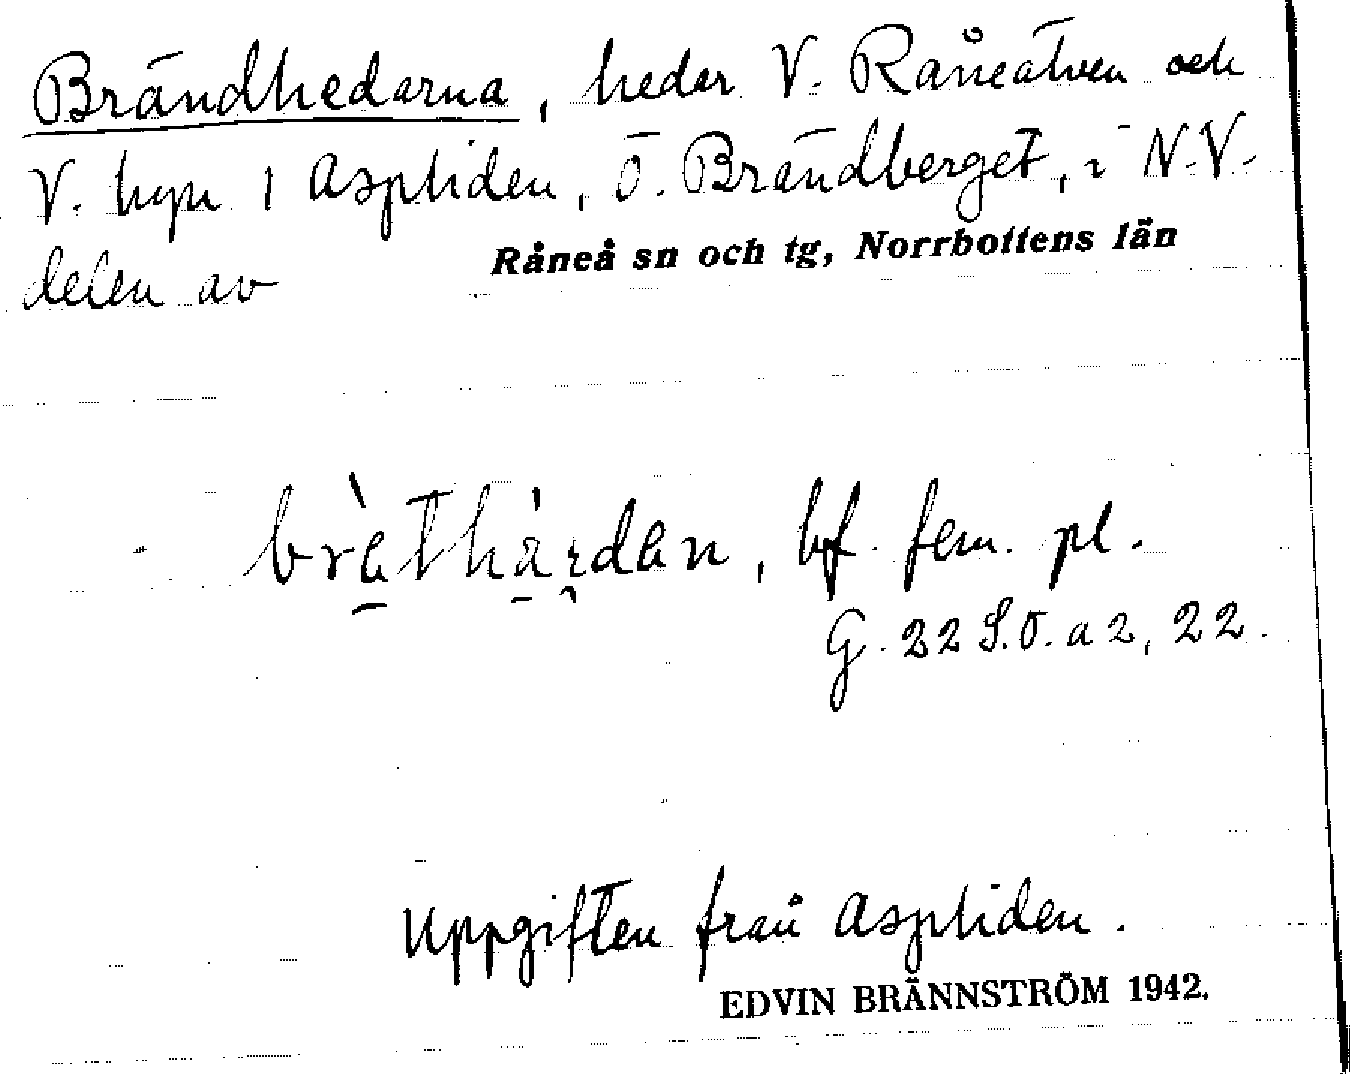 Brändhedarna, hedar V. Råneälven och
V. byn i Aspliden, Ö. Brändberget, i N.V.
delen av Råneå sn och tg, Norrbottens län
bf. fem. pl.
G. 22 S.O. a 2, 22.
Uppgiften från Aspliden.
EDVIN BRÄNNSTRÖM 1942.